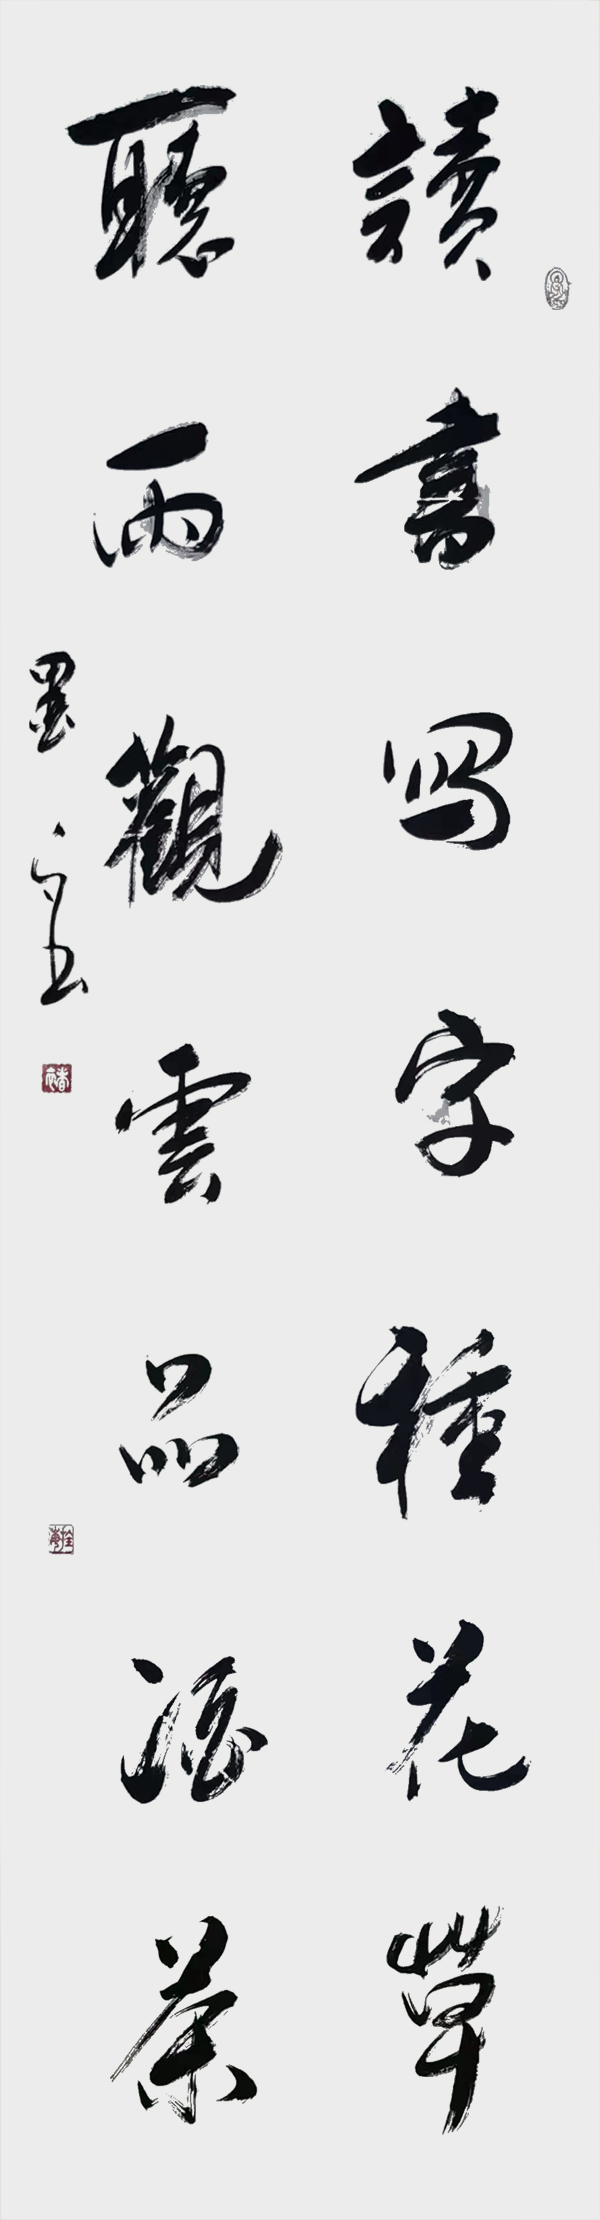 讀書寫字種花草
聽雨觀雲品酒茶
墨